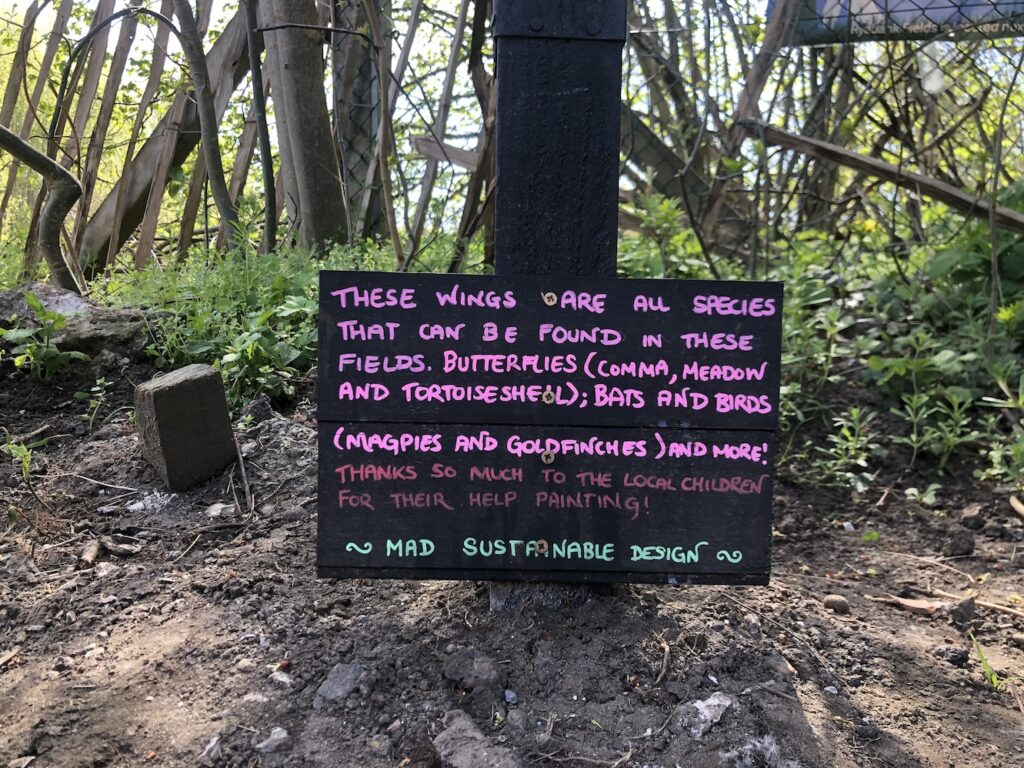 THESE WINGS ARE ALL SPECIES
THAT CAN BE FOUND IN THESE
FIELDS. BUTTERFLIES (COMMA, MEADOW
AND TORTOISESHELL); BATS AND BIRDS
(MAGPIES AND GOLDFINCHES) AND MORE!
THANKS SO MUCH TO THE LOCAL CHILDREN
FOR THEIR HELP PAINTING!
~ MAD SUSTAINABLE DESIGN ~